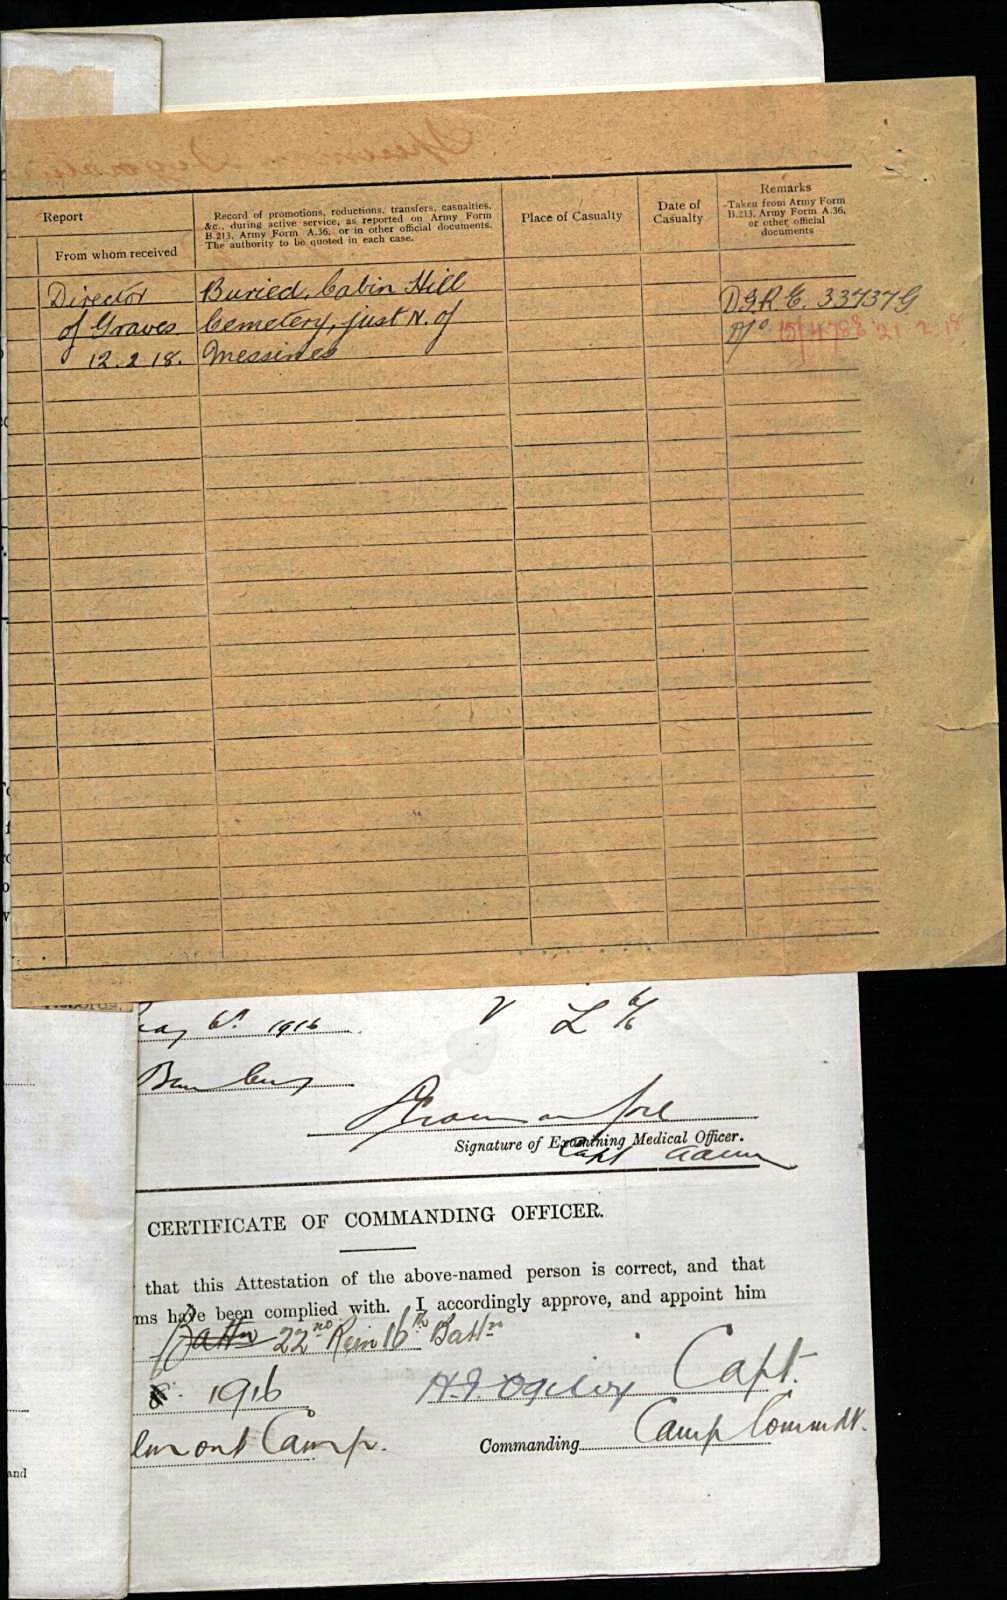 Report
From whom received
Record of promotions, reductions, transfers, casualties,
&c., during active service, as reported on Army Form
B.213, Army Form A.36, or in other official documents.
The authority to be quoted in each case.
Place of Casualty
Date of
Casualty
Remarks
Taken from Army Form
B.213, Army Form A.36,
or other official
documents
Director
of Graves
12.2.18.
Buried, Cabin Hill
Cemetery, just N. of
Messines
D.G.R.E. 33737G
21.2.18
Records.
6th 1916
Bunbury
Signature of Examining Medical Officer.
Capt
CERTIFICATE OF COMMANDING OFFICER.
that this Attestation of the above-named person is correct, and that
ms have been complied with. I accordingly approve, and appoint him
Battn 22nd Rein 16th Battn
1916
H.F. Ogilvy Capt.
Camp.
Commanding Camp Commdt.
and